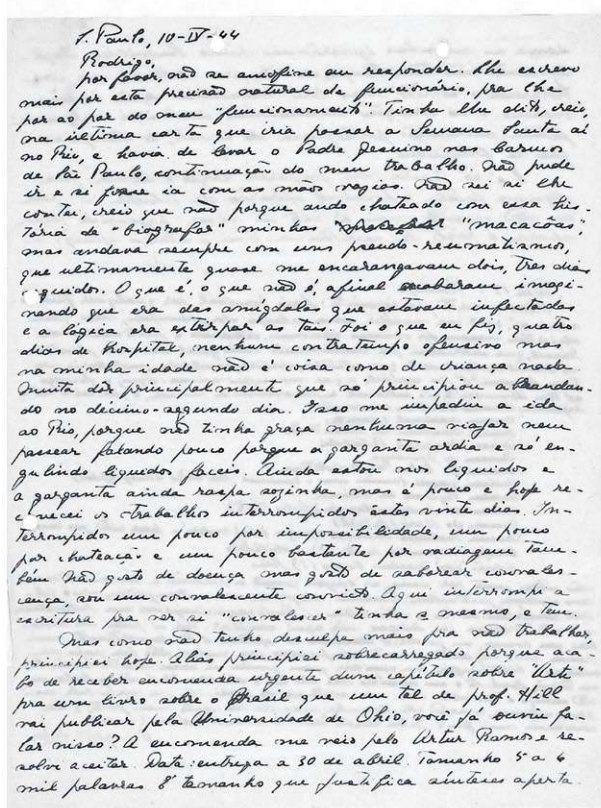 S. Paulo, 10-IV-44
Rodrigo,
por favor, não se amofine em responder. Lhe escrevo
mais por esta precisão natural de funcionário, pra lhe
por ao par do meu "funcionamento". Tinha lhe dito, creio,
na última carta que iria passar a Semana Santa aí
no Rio, e havia de levar o Padre Jesuino nos Carmos
de São Paulo, continuação do meu trabalho. Não pude
ir e si fosse ia com as mãos vazias. Não sei si lhe
contei, creio que não porque ando chateado com essa his-
tória de "biografar" minhas "macacôas",
mas andava sempre com uns pseudo-reumatismos,
que ultimamente quase me encarangavam dois, tres dias
seguidos. O que é, o que não é, afinal acabaram imagi-
nando que era das amígdalas que estavam infectadas
e a lógica era extirpar as tais. Foi o que eu fiz, quatro
dias de hospital, nenhum contratempo ofensivo mas
na minha idade não é coisa como de criança nada.
Muita dôr principalmente que só principiou abrandan-
do no décimo-segundo dia. Isso me impediu a ida
ao Rio, porque não tinha graça nenhuma viajar nem
passear falando pouco porque a garganta ardia e só en-
gulindo liquidos faceis. Ainda estou nos liquidos e
a garganta ainda raspa sozinha, mas é pouco e hoje re-
comecei os trabalhos interrompidos êstes vinte dias. In-
terrompidos um pouco por impossibilidade, um pouco
por chateação e um pouco bastante por vadiagem tam-
bém. Não gosto de doença mas gosto de saborear convales-
cença, sou um convalescente convicto. Aqui interrompi a
escritura pra ver si "convalescer" tinha s mesmo, e tem.
Mas como não tenho desculpa mais pra não trabalhar,
principiei hoje. Aliás principiei sobrecarregado porque aca-
bo de receber encomenda urgente dum capítulo sobre "Arte"
pra um livro sobre o Brasil que um tal de prof. Hill
vai publicar pela Universidade de Ohio, você já ouviu fa-
lar nisso? A encomenda me veio pelo Artur Ramos e re-
solvi aceitar. Data: entrega a 30 de abril. Tamanho 5 a 6
mil palavras. É tamanho que justifica sínteses aperta